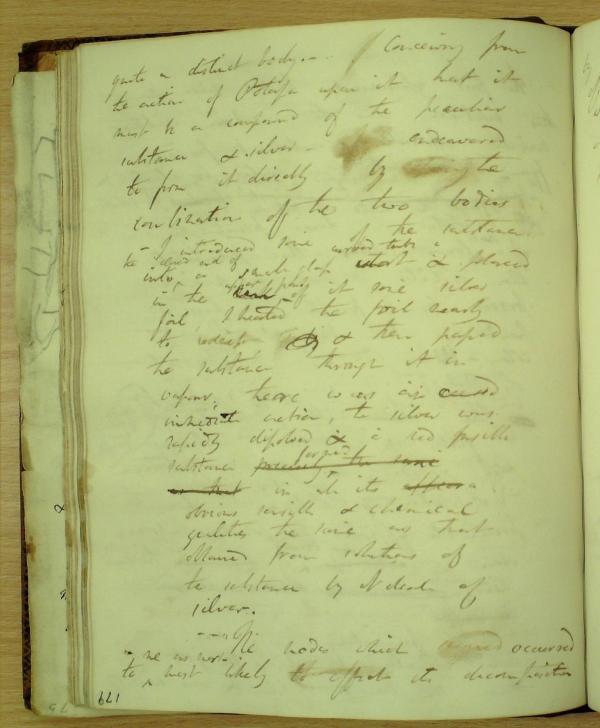 quite a distinct body. – Conceiving from
the action of Potassa upon it that it
must be a compound of the peculiar
substance & silver – endeavored
to form it directly by the
combination of the two bodies
– I introduced some of the substance
the closed end of curved tube &
into a small glass & placed
in the upper part of it some silver
foil, I heated the foil nearly
to redness & then passed
the substance through it in
vapour, there was an
immediate action, the silver was
rapidly dissolved & a red fusible
substance formed
precisely the same
as that in all its
obvious sensible & chemical
qualities the same as that
obtained from solutions of
the substance by Nitrate of
silver.
The modes which occurred
to me as most likely to effect its decomposition
179